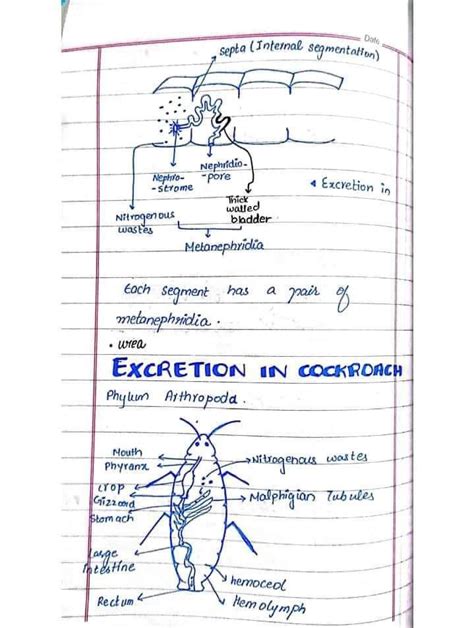 Date
Septa (Internal segmentation)
Nephro-
-strome
Nephridio-
-pore
Excretion in
Thick
walled
bladder
Nitrogenous
wastes
Metanephridia
Each segment has a pair of
metanephridia.
• urea
EXCRETION IN COCKROACH
Phylum Arthropoda.
Mouth
Phyranx
Nitrogenous wastes
Crop
Gizzard
Malphigian Tubules
Stomach
Large
intestine
hemoceol
Rectum
Hemolymph